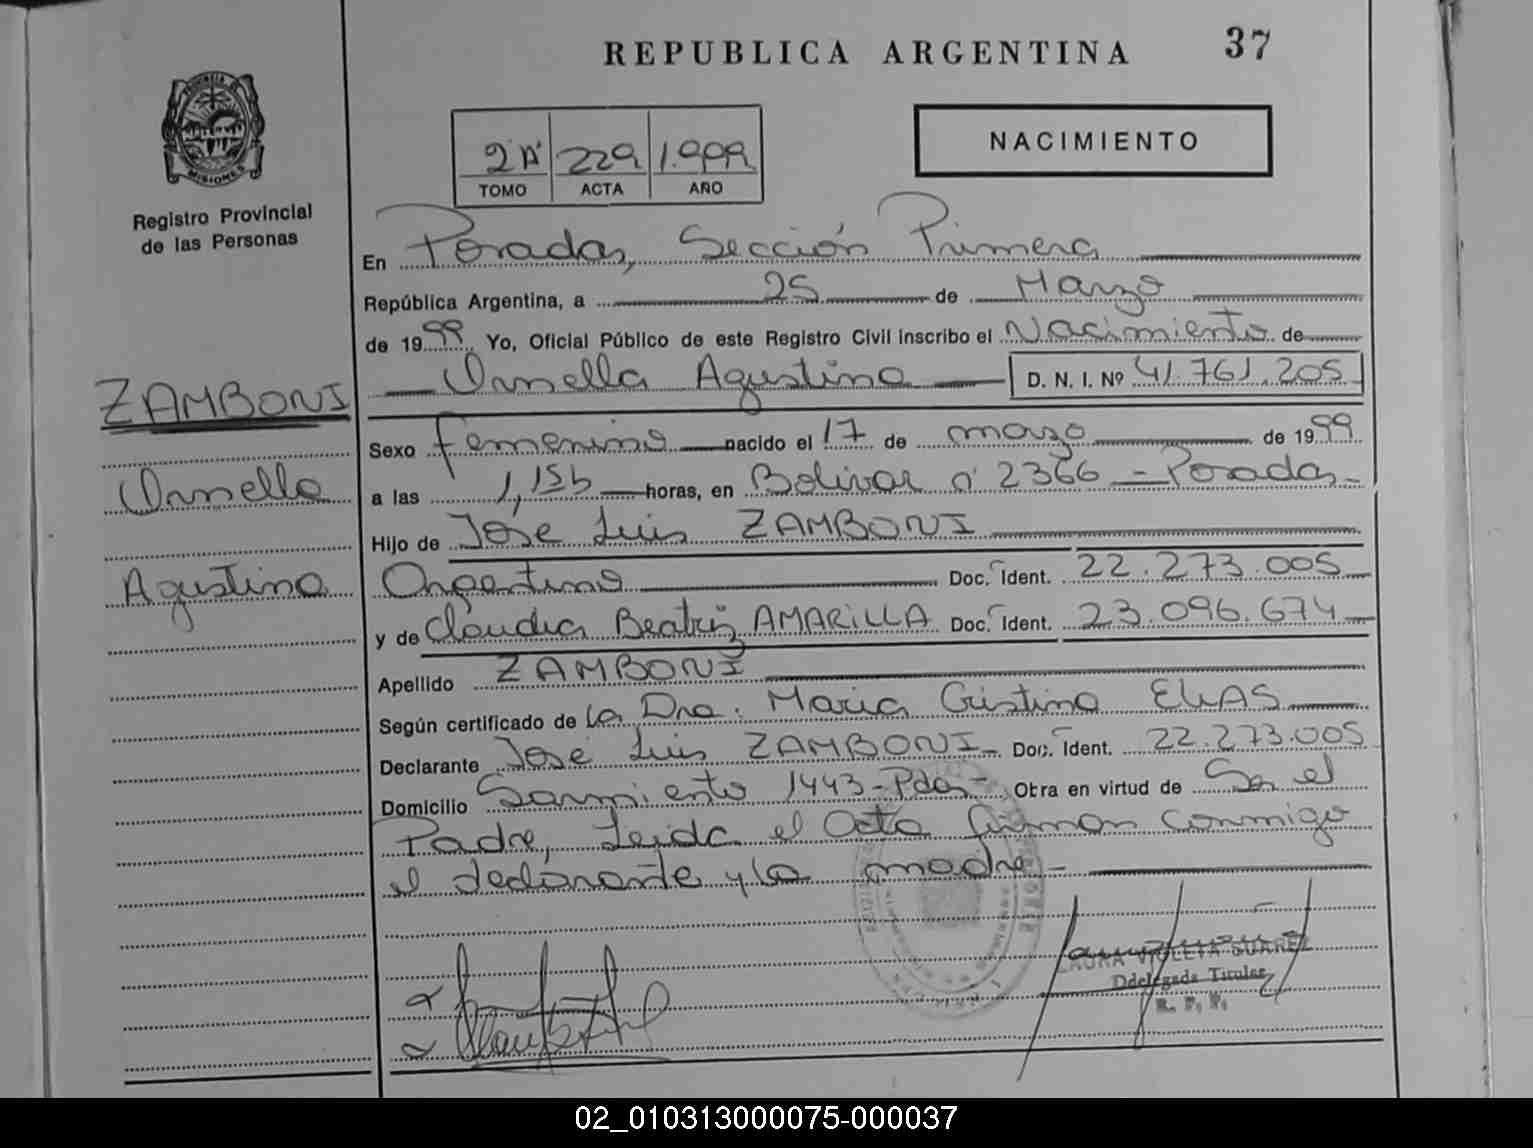 REPUBLICA ARGENTINA
37
PROVINCIA DE
MISIONES
Registro Provincial
de las Personas
2 "A" 229 1.999
TOMO ACTA AÑO
NACIMIENTO
En Posadas, Sección Primera
República Argentina, a 25 de Marzo
de 1999 Yo, Oficial Público de este Registro Civil inscribo el Nacimiento de
Ornella Agustina D. N. I. Nº 41.761.205
ZAMBONI
Ornella
Agustina
Sexo femenino nacido el 17 de marzo de 1999
a las 1,15h horas, en Bolivar nº 2366 - Posadas -
Hijo de Jose Luis ZAMBONI
Argentino Doc. Ident. 22.273.005
y de Claudia Beatriz AMARILLA Doc. Ident. 23.096.674
Apellido ZAMBONI
Según certificado de la Dra. Maria Cristina ELIAS
Declarante José Luis ZAMBONI - Doc. Ident. 22.273.005
Domicilio Sarmiento 1443 - Pdas - Obra en virtud de Ser el
Padre, Leida el Acta firman conmigo
el declarante y la madre -
LAURA VIOLETA SUAREZ
Delegada Titular
R. P. P.
02_010313000075-000037